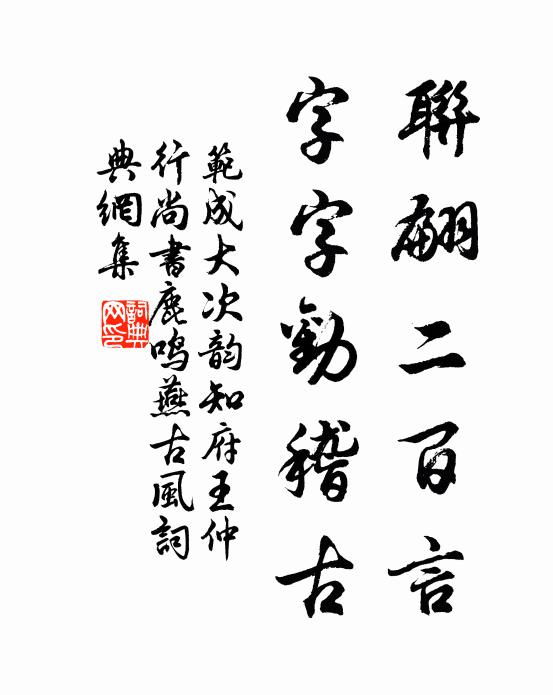 聯翩二百言
字字勸稽古
範成大次韵知府王仲
行尚書鹿鳴燕古風詞
典網集
詞典
网印